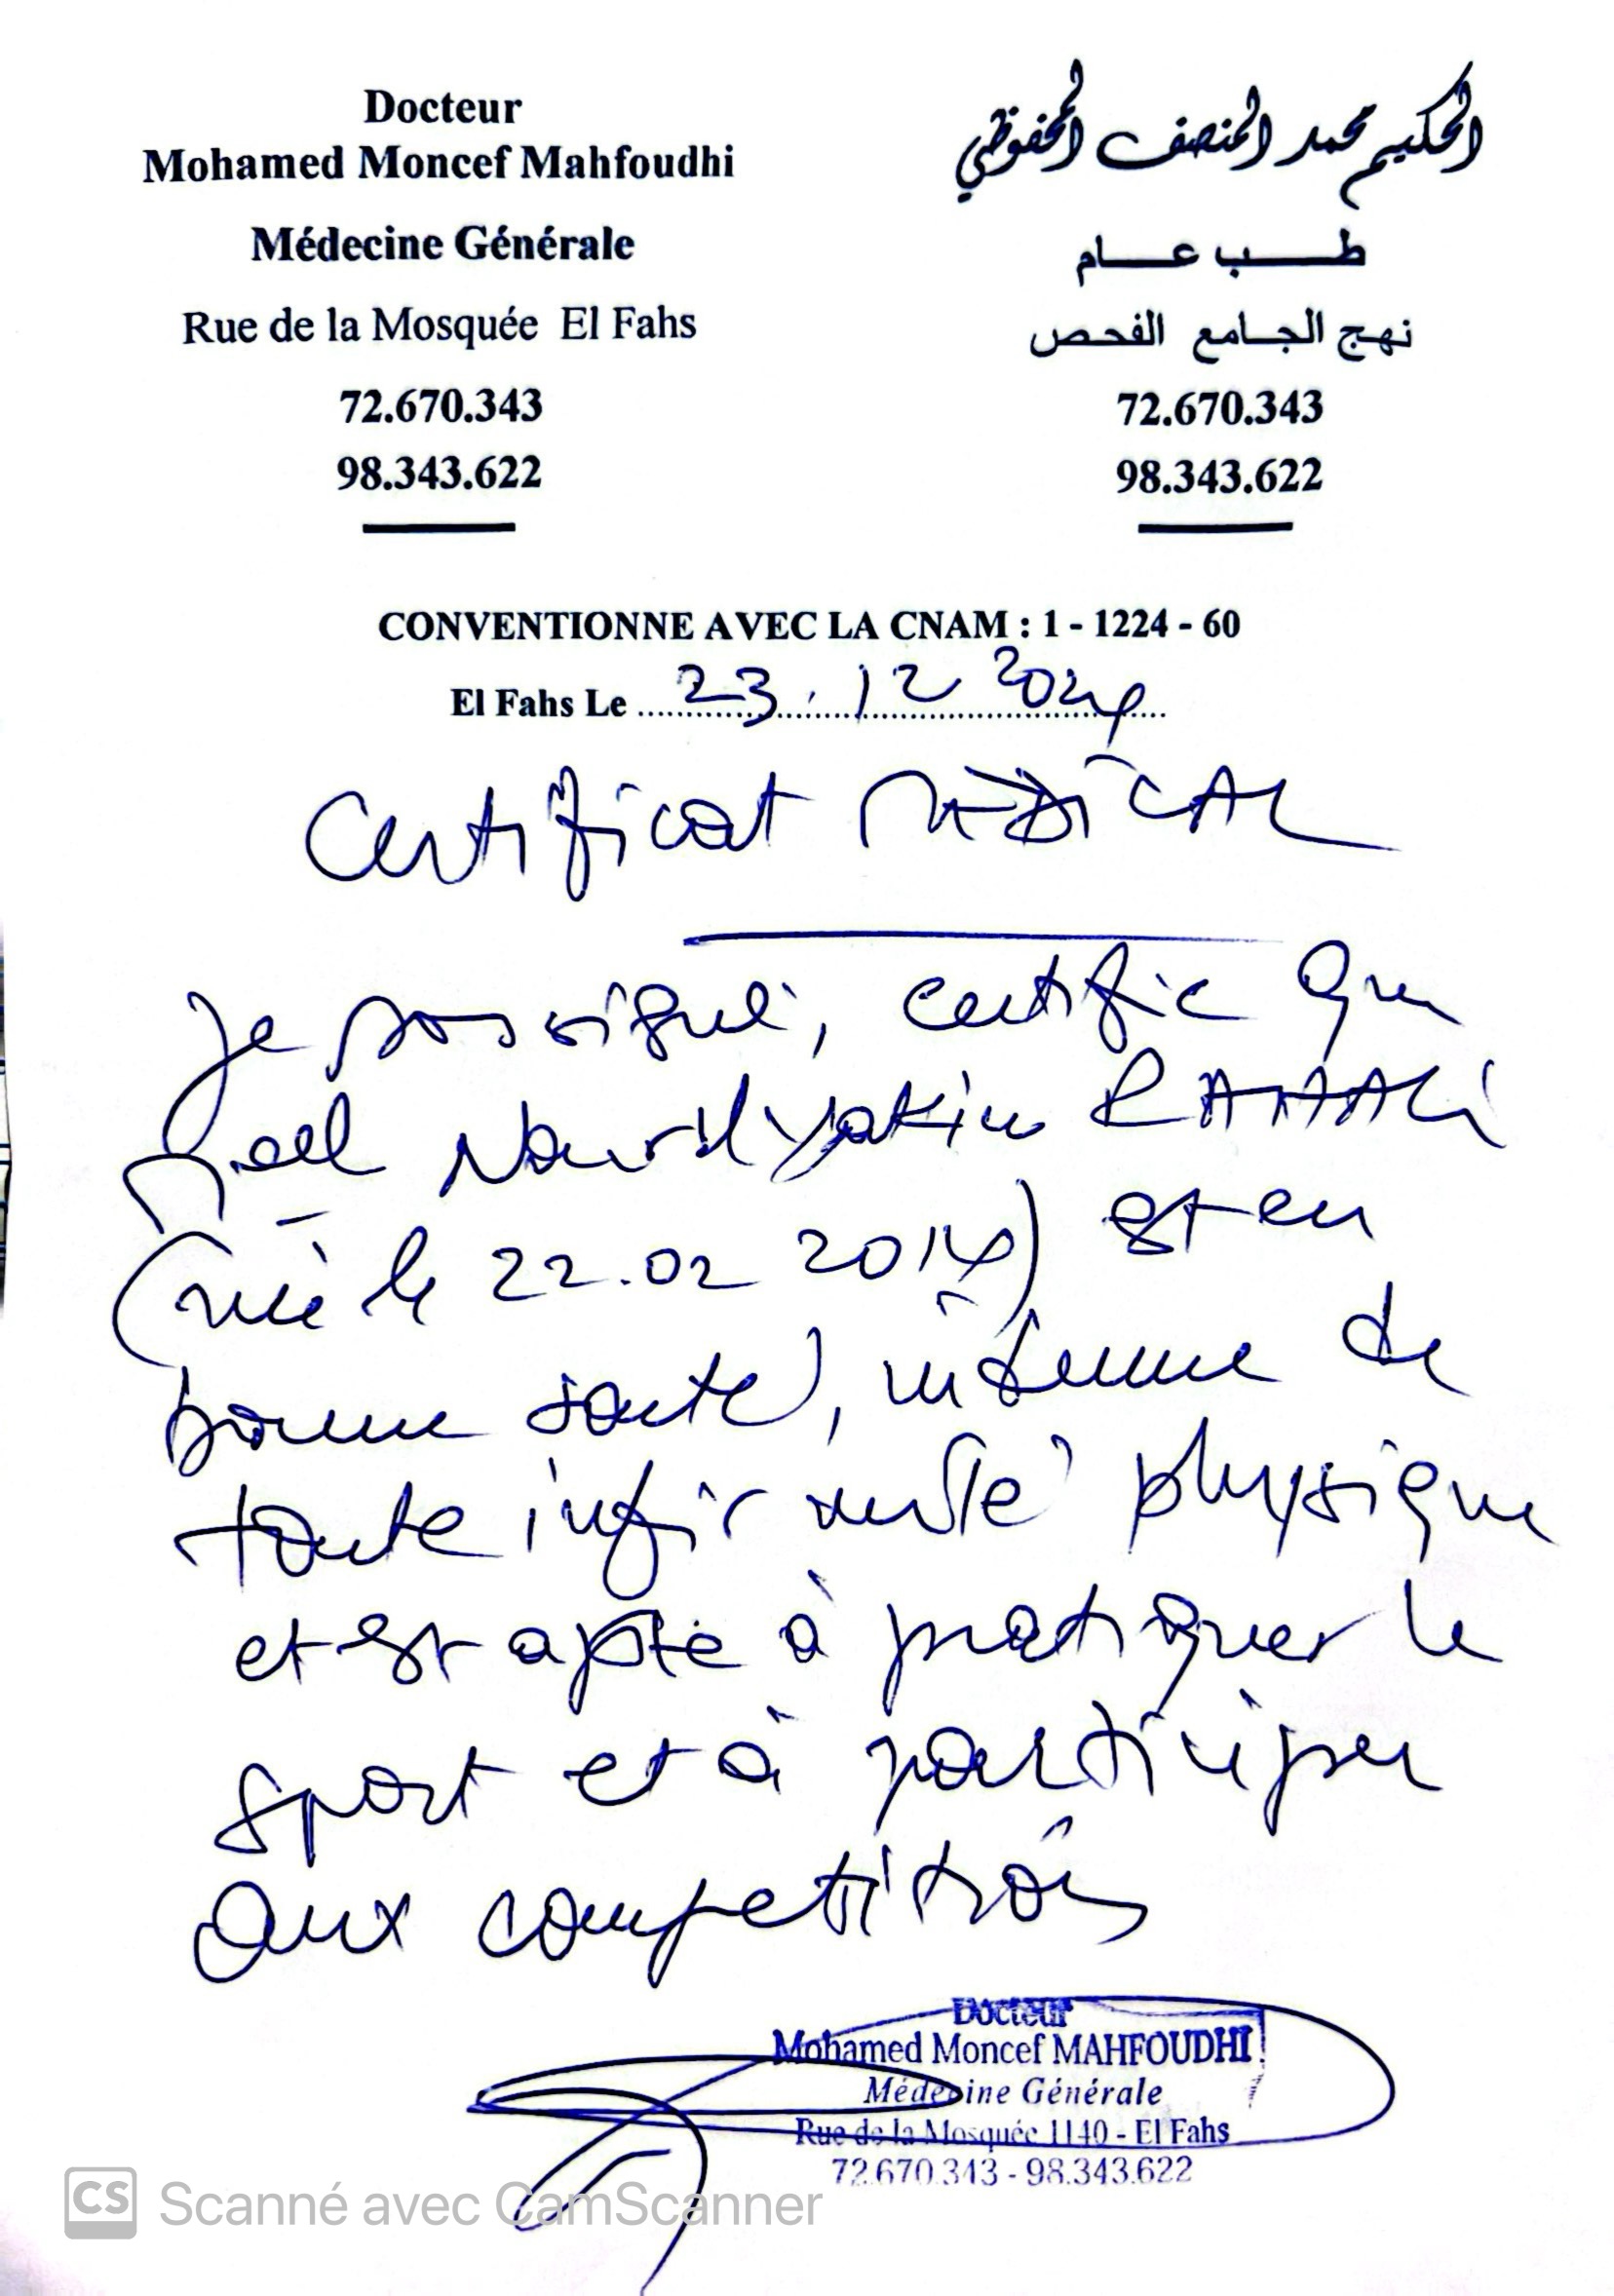 Docteur
Mohamed Moncef Mahfoudhi
Médecine Générale
Rue de la Mosquée El Fahs
72.670.343
98.343.622
الحكيم محمد المنصف المحفوظي
طب عام
نهج الجامع الفحص
72.670.343
98.343.622
CONVENTIONNE AVEC LA CNAM : 1 - 1224 - 60
El Fahs Le 23.12 2024
Certificat MEDICAL
Je soussigné, certifie que
Nourelyakin
(née le 22.02 2014) est en
bonne santé, indemne de
toute infirmité physique
et est apte à pratiquer le
sport et à participer
aux competitions
Docteur
Mohamed Moncef MAHFOUDHI
Médecine Générale
Rue de la Mosquée 1140 - El Fahs
72.670.343 - 98.343.622
CS Scanné avec CamScanner